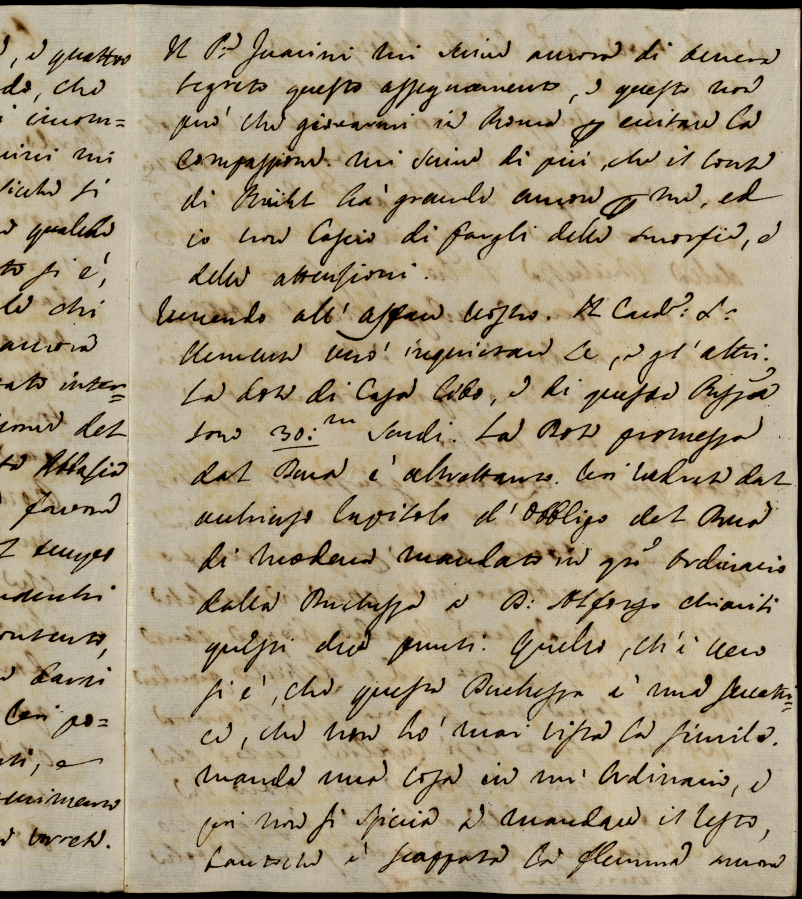 , e quattro
do, che
i incom=
uirui mi
siche si
e qualche
to si è,
le chi
ancora
tato inter=
sione del
favore
l tempo
contento,
e darsi
Lei po=
ti, e
e vorrete.
Il P.re Guarini mi scrive ancora di tenere
segreto questo assegnamento, e questo non
può che giovarmi in Roma per evitare la
compassione. mi scrive di più, che il Conte
di Brühl hà grande amore per me, ed
io non lascio di fargli delle smorfie, e
delle attenzioni.
Venendo all' affare nostro. Il Card.e:
può inquietare Le, e gl' altri.
La dote di Casa Cibo, e di questa Duchessa
sono 30: m scudi. La Dote promessa
dal Duca è altrettanto. Lei vedrà dal
Capitolo d' Obbligo del Duca
di Modena mandato in questo Ordinario
dalla Duchessa a D: Alfonso chiariti
questi due punti. Quello, ch' è vero
si è, che questa Duchessa è una seccatri=
ce, che non hò mai vista la simile.
manda una cosa in un' Ordinario, e
poi non si spiccia a mandare il resto,
è scappata la flemma ancora